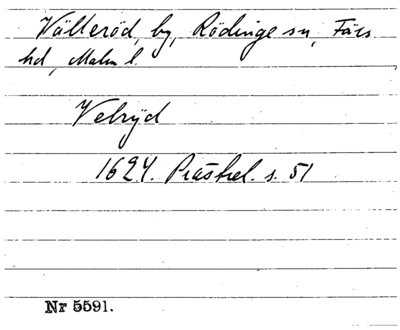 Välleröd, by, Rödinge sn, Färs
hd, Malm l.
Velryd
1624. Prästrel. s. 51
Nr 5591.